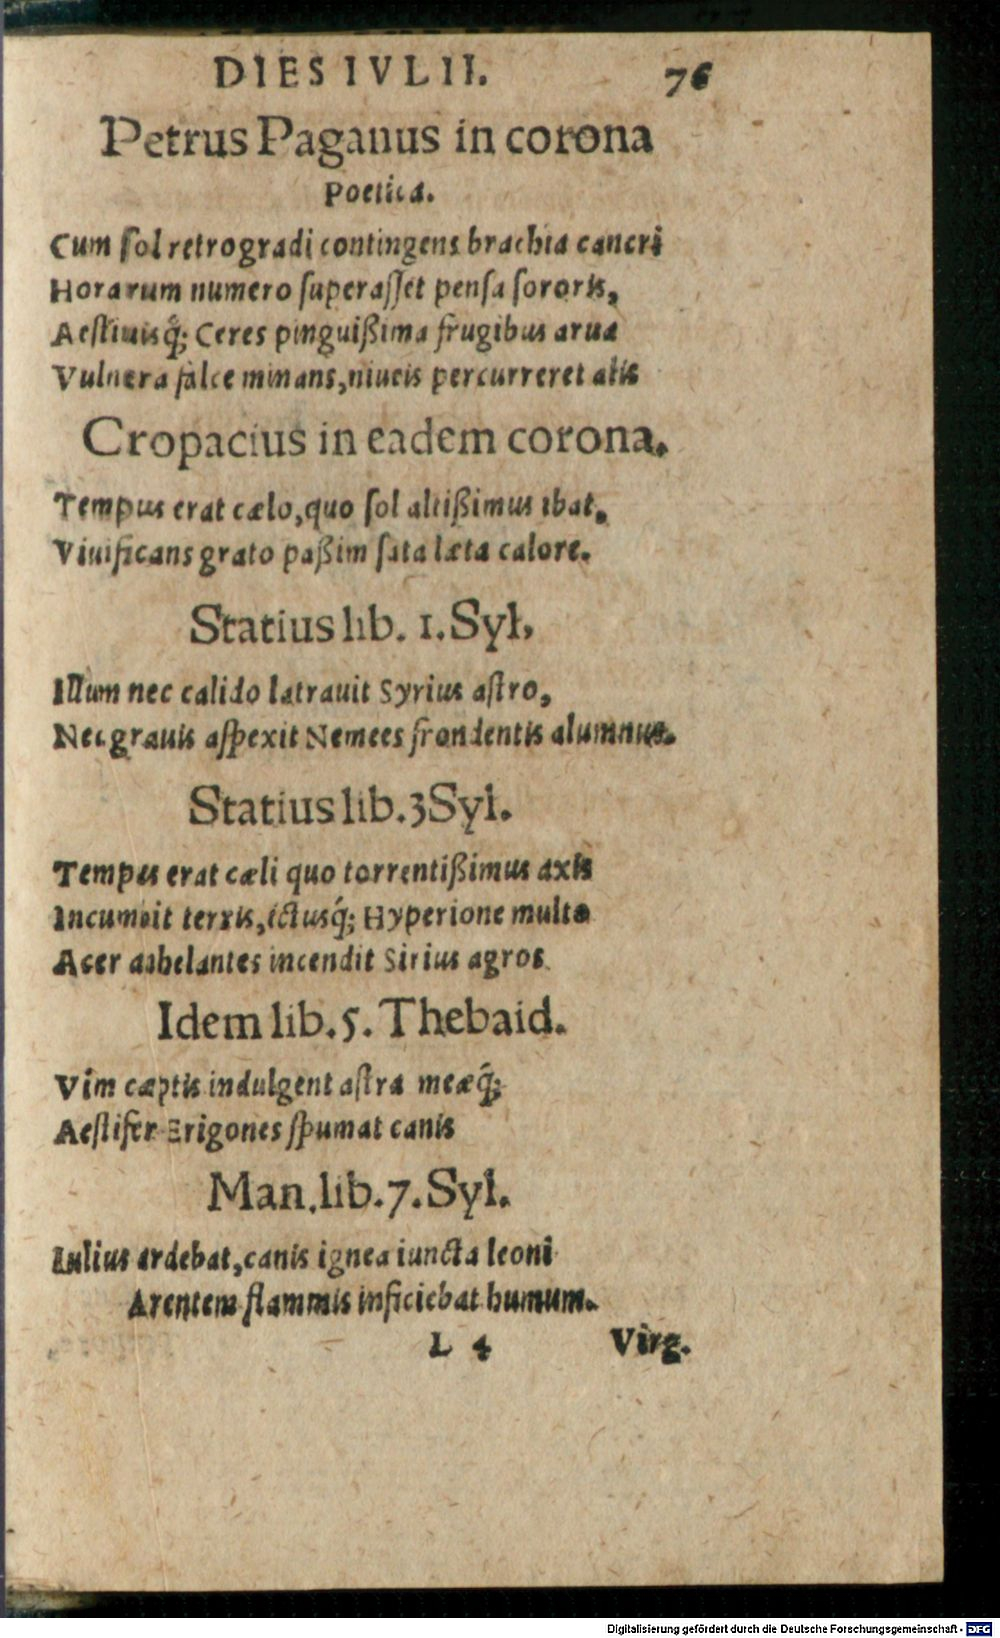 DIES IVLII. 76
Petrus Paganus in corona
Poetica.
Cum ſol retrogradi contingens brachia cancri
Horarum numero ſuperaſſet penſa ſororis,
Aeſtiuisq́; Ceres pinguißima frugibus arua
Vulnera falce minans, niueis percurreret alis
Cropacius in eadem corona.
Tempus erat cælo, quo ſol altißimus ibat.
Viuificans grato paßim ſata læta calore.
Statius lib. 1. Syl.
Illum nec calido latrauit Syrius aſtro,
Nec grauis aſpexit Nemees frondentis alumnus.
Statius lib. 3 Syl.
Tempus erat cæli quo torrentißimus axis
Incumbit terris, ictusq́; Hyperione multo
Acer anhelantes incendit Sirius agros.
Idem lib. 5. Thebaid.
Vim cæptis indulgent aſtra meæq́;
Aeſtifer Erigones ſpumat canis
Man. lib. 7. Syl.
Iulius ardebat, canis ignea iuncta leoni
Arentem flammis inficiebat humum.
L 4 Virg.
Digitalisierung gefördert durch die Deutsche Forschungsgemeinschaft - DFG